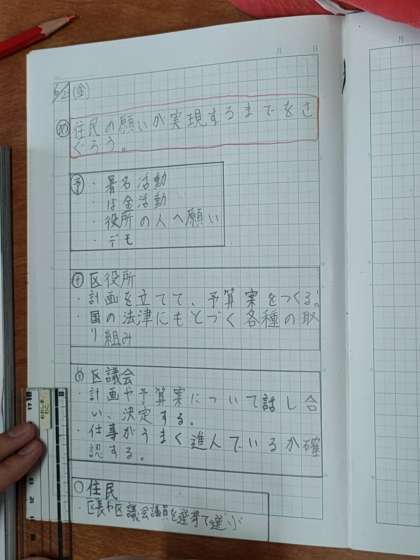 5/2(金)
住民の願いが実現するまでをさ
ぐろう。
㋵・署名活動
・は金活動
・役所の人へ願い
・デモ
区役所
・計画を立てて、予算案をつくる。
・国の法津にもとづく各種の取
り組み
区議会
・計画や予算案について話し合
い、決定する。
・仕事がうまく進んでいるか確
認する。
〇住民
・区長や区議会議員を選挙で選ぶ